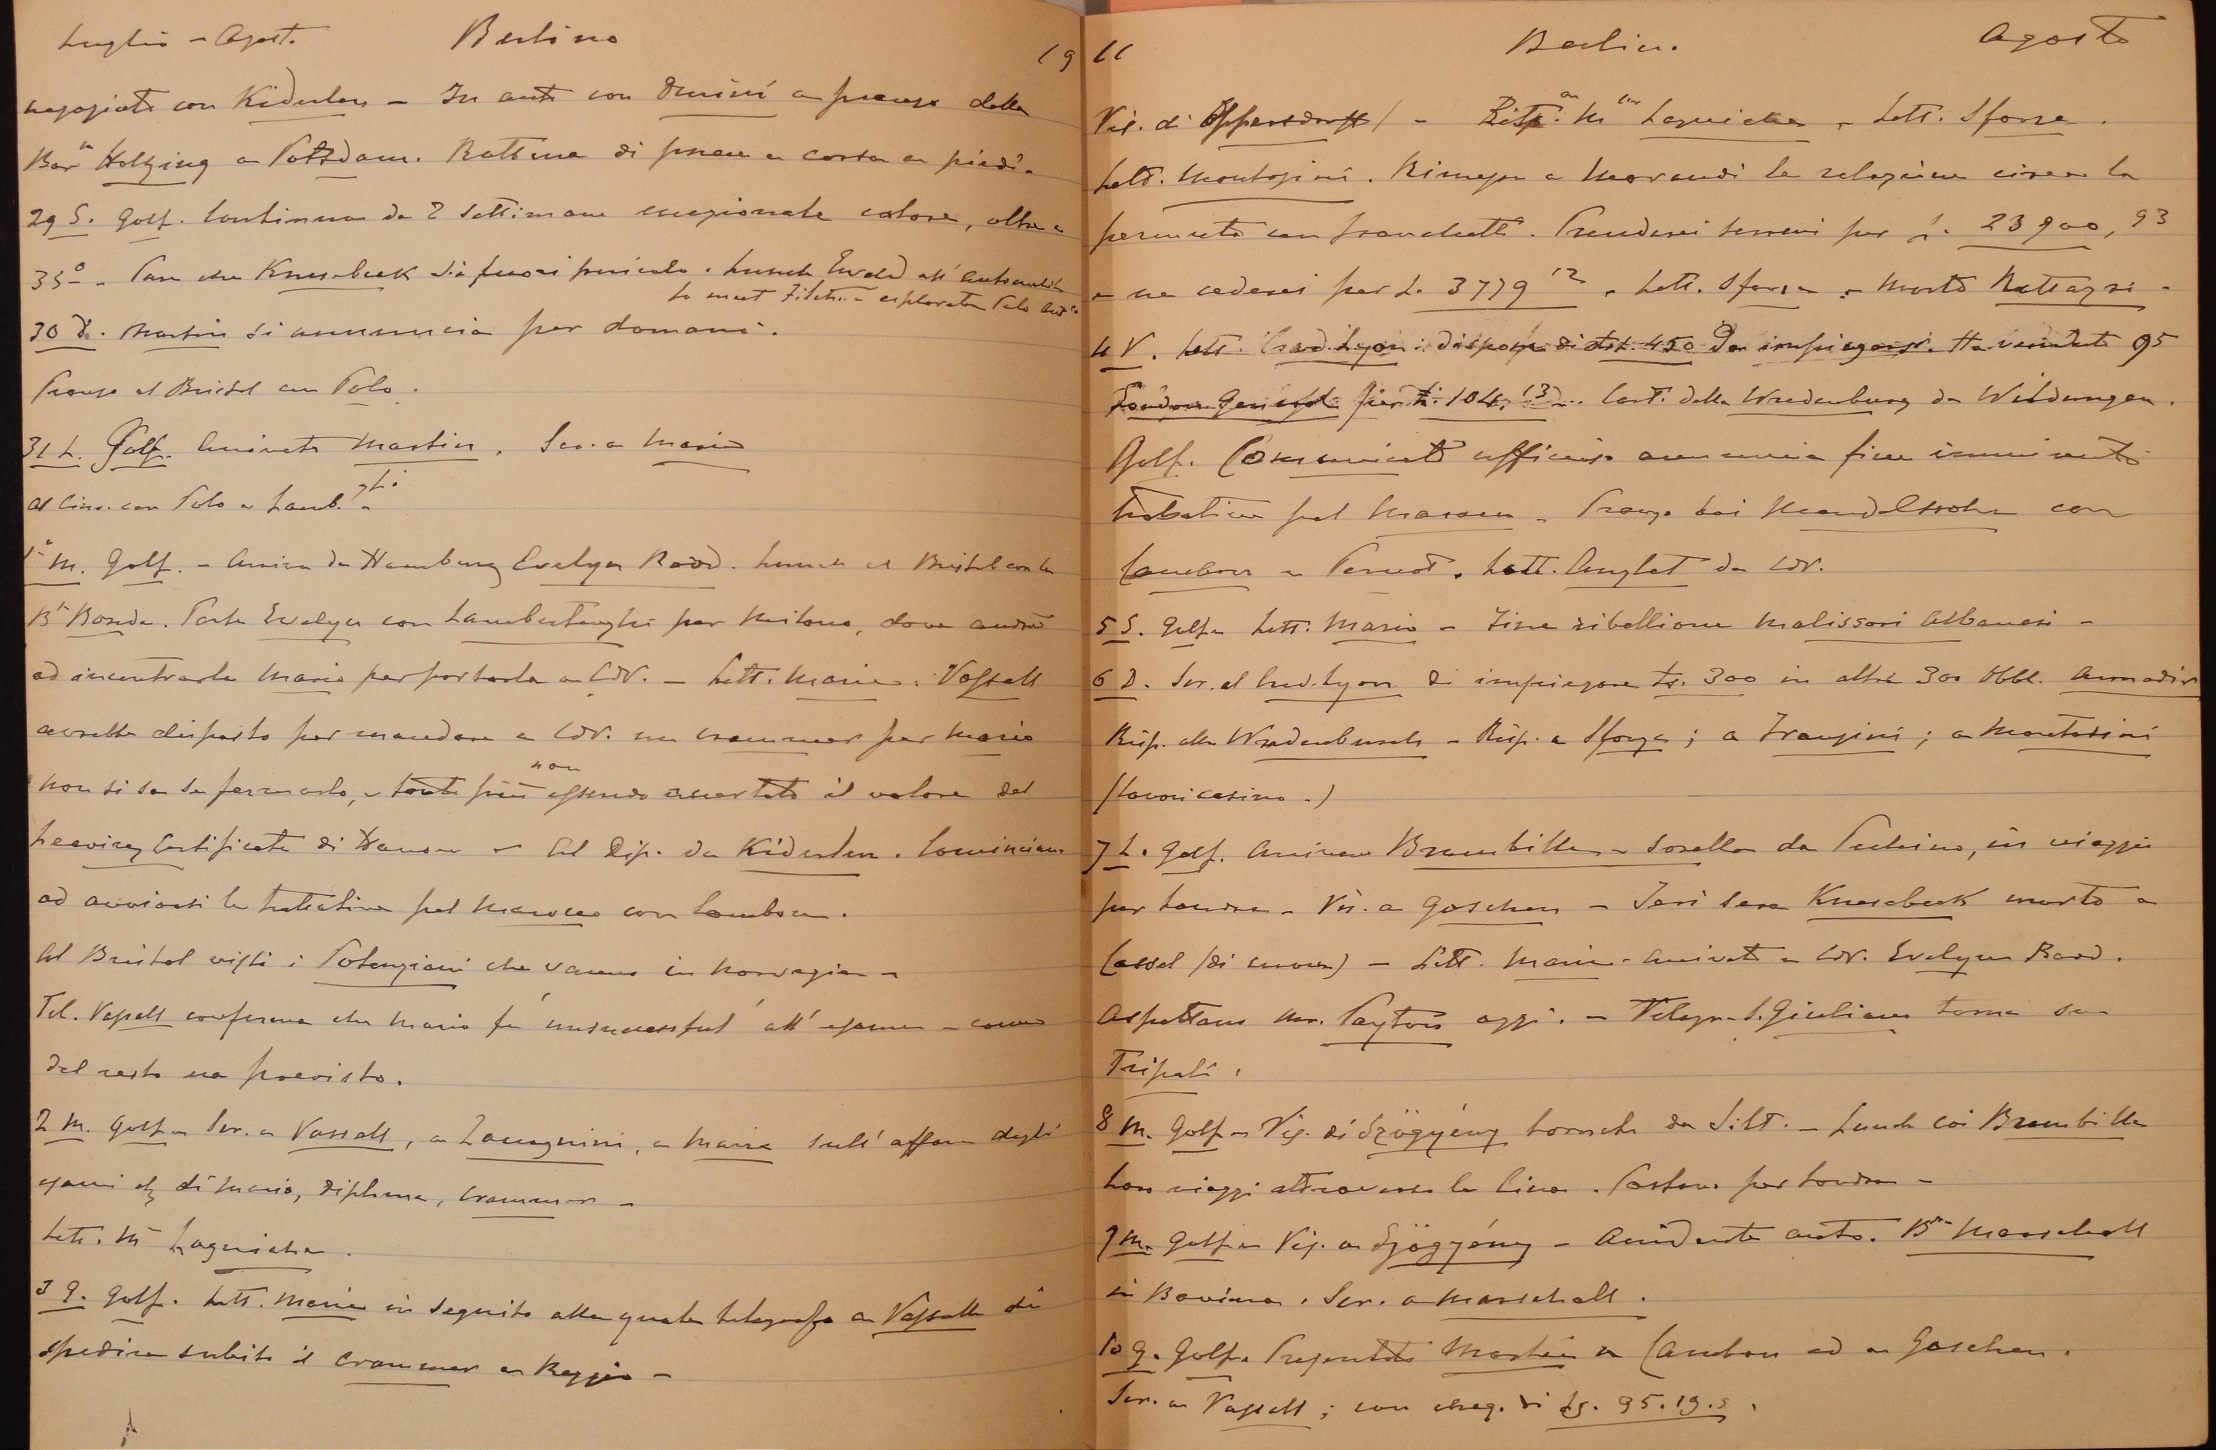 Luglio – Agost. Berlino 19
negoziato con Kiderlen – In auto con a pranzo della
Bar.ⁿ Holzing a Potsdam. di a corsa a piedi.
29 S. Golf. Continua da 2 settimane eccezionale calore, oltre a
35° – Pare che Knesebeck sia fuori pericolo. Lunch Ewald all'
to meet Filchner esploratore Polo
30 D. Martin si annuncia per domani.
Pranzo al Bristol con Polo.
31 L. Golf. Arrivato Martin. Scr. a Mario
al Circ. con Polo e Lamb.ghi
1° M. Golf. – Arriva da Hamburg Evelyn Rood. Lunch al Bristol con la
B.ⁿ Parte Evelyn con Lambertenghi per Milano, dove andrà
ad incontrarla Mario per portarla a CdV. – Lett. Mario. Vassall
avrebbe disposto per mandare a CdV. un crammer per Mario
non si sa se fermarlo, tanto più non essendo accertato il valore del
Leaving Certificate di Harrow – Al Dip. da Kiderlen. Cominciano
ad avviarsi le trattative pel Marocco con Cambon.
Al Bristol visti i Potenziani che vanno in Norvegia –
Tel. Vassall conferma che Mario fu unsuccessful all'esame – come
del resto era previsto.
2 M. Golf – Scr. a Vassall, a Zamagnini, a Mario sull'affare degli
esami di Mario, diploma, crammer –
Lett. M Laguiche.
3 G. Golf. Lett. Mario in seguito alla quale telegrafo a Vassall di
spedire subito il crammer a Reggio –
11 Berlino. Agosto
Vis. di Oppersdorff / – Laguiche – Lett. Sforza.
Lett. Montagini. Rimessa a Morandi la relazione circa la
permuta con Franchetti. Prenderei terreni per L. 23900,93
e ne cederei per L. 3779 12. Lett. Sforza – Morto Rattazzi –
4 V. Lett. Cred. Lyon: dispone di 450 da impiegarsi. Ha venduto 95
per 104. Cart. della Wredenburg da Wildungen.
Golf. Comunicato ufficioso annuncia fine imminente
trattative pel Marocco – Pranzo dai Mendelssohn con
Cambon e Lett. Anglet da CdV.
5 S. Golf – Lett. Mario – Fine ribellione Malissori Albanesi –
6 D. Scr. al Cred. Lyon. di impiegare 300 in altre 300 Obbl.
Risp. alla – Risp. a Sforza; a Frangini; a
(lavori casino.)
7 L. Golf. Arrivano Brambilla e sorella da Pechino, in viaggio
per Londra – Vis. a Goschen – Ieri sera Knesebeck morto a
Cassel (di cuore) – Lett. Mario – arrivato a CdV. Evelyn Rood.
Aspettano Mr. Payton oggi. – Telegr. S. Giuliano torna su
Tripoli.
8 M. Golf – Vis. di Szögyény tornato da Silt. – Lunch coi Brambilla
loro viaggio attraverso la Cina. Partono per Londra –
9 M. Golf – Vis. a Szögyény – Accidente auto. B.ⁿ Marschall
in Baviera. Scr. a Marschall.
10 G. Golf – Presentato Martin a Cambon ed a Goschen.
Scr. a Vassall; con cheq. di Ls. 95.19.5.